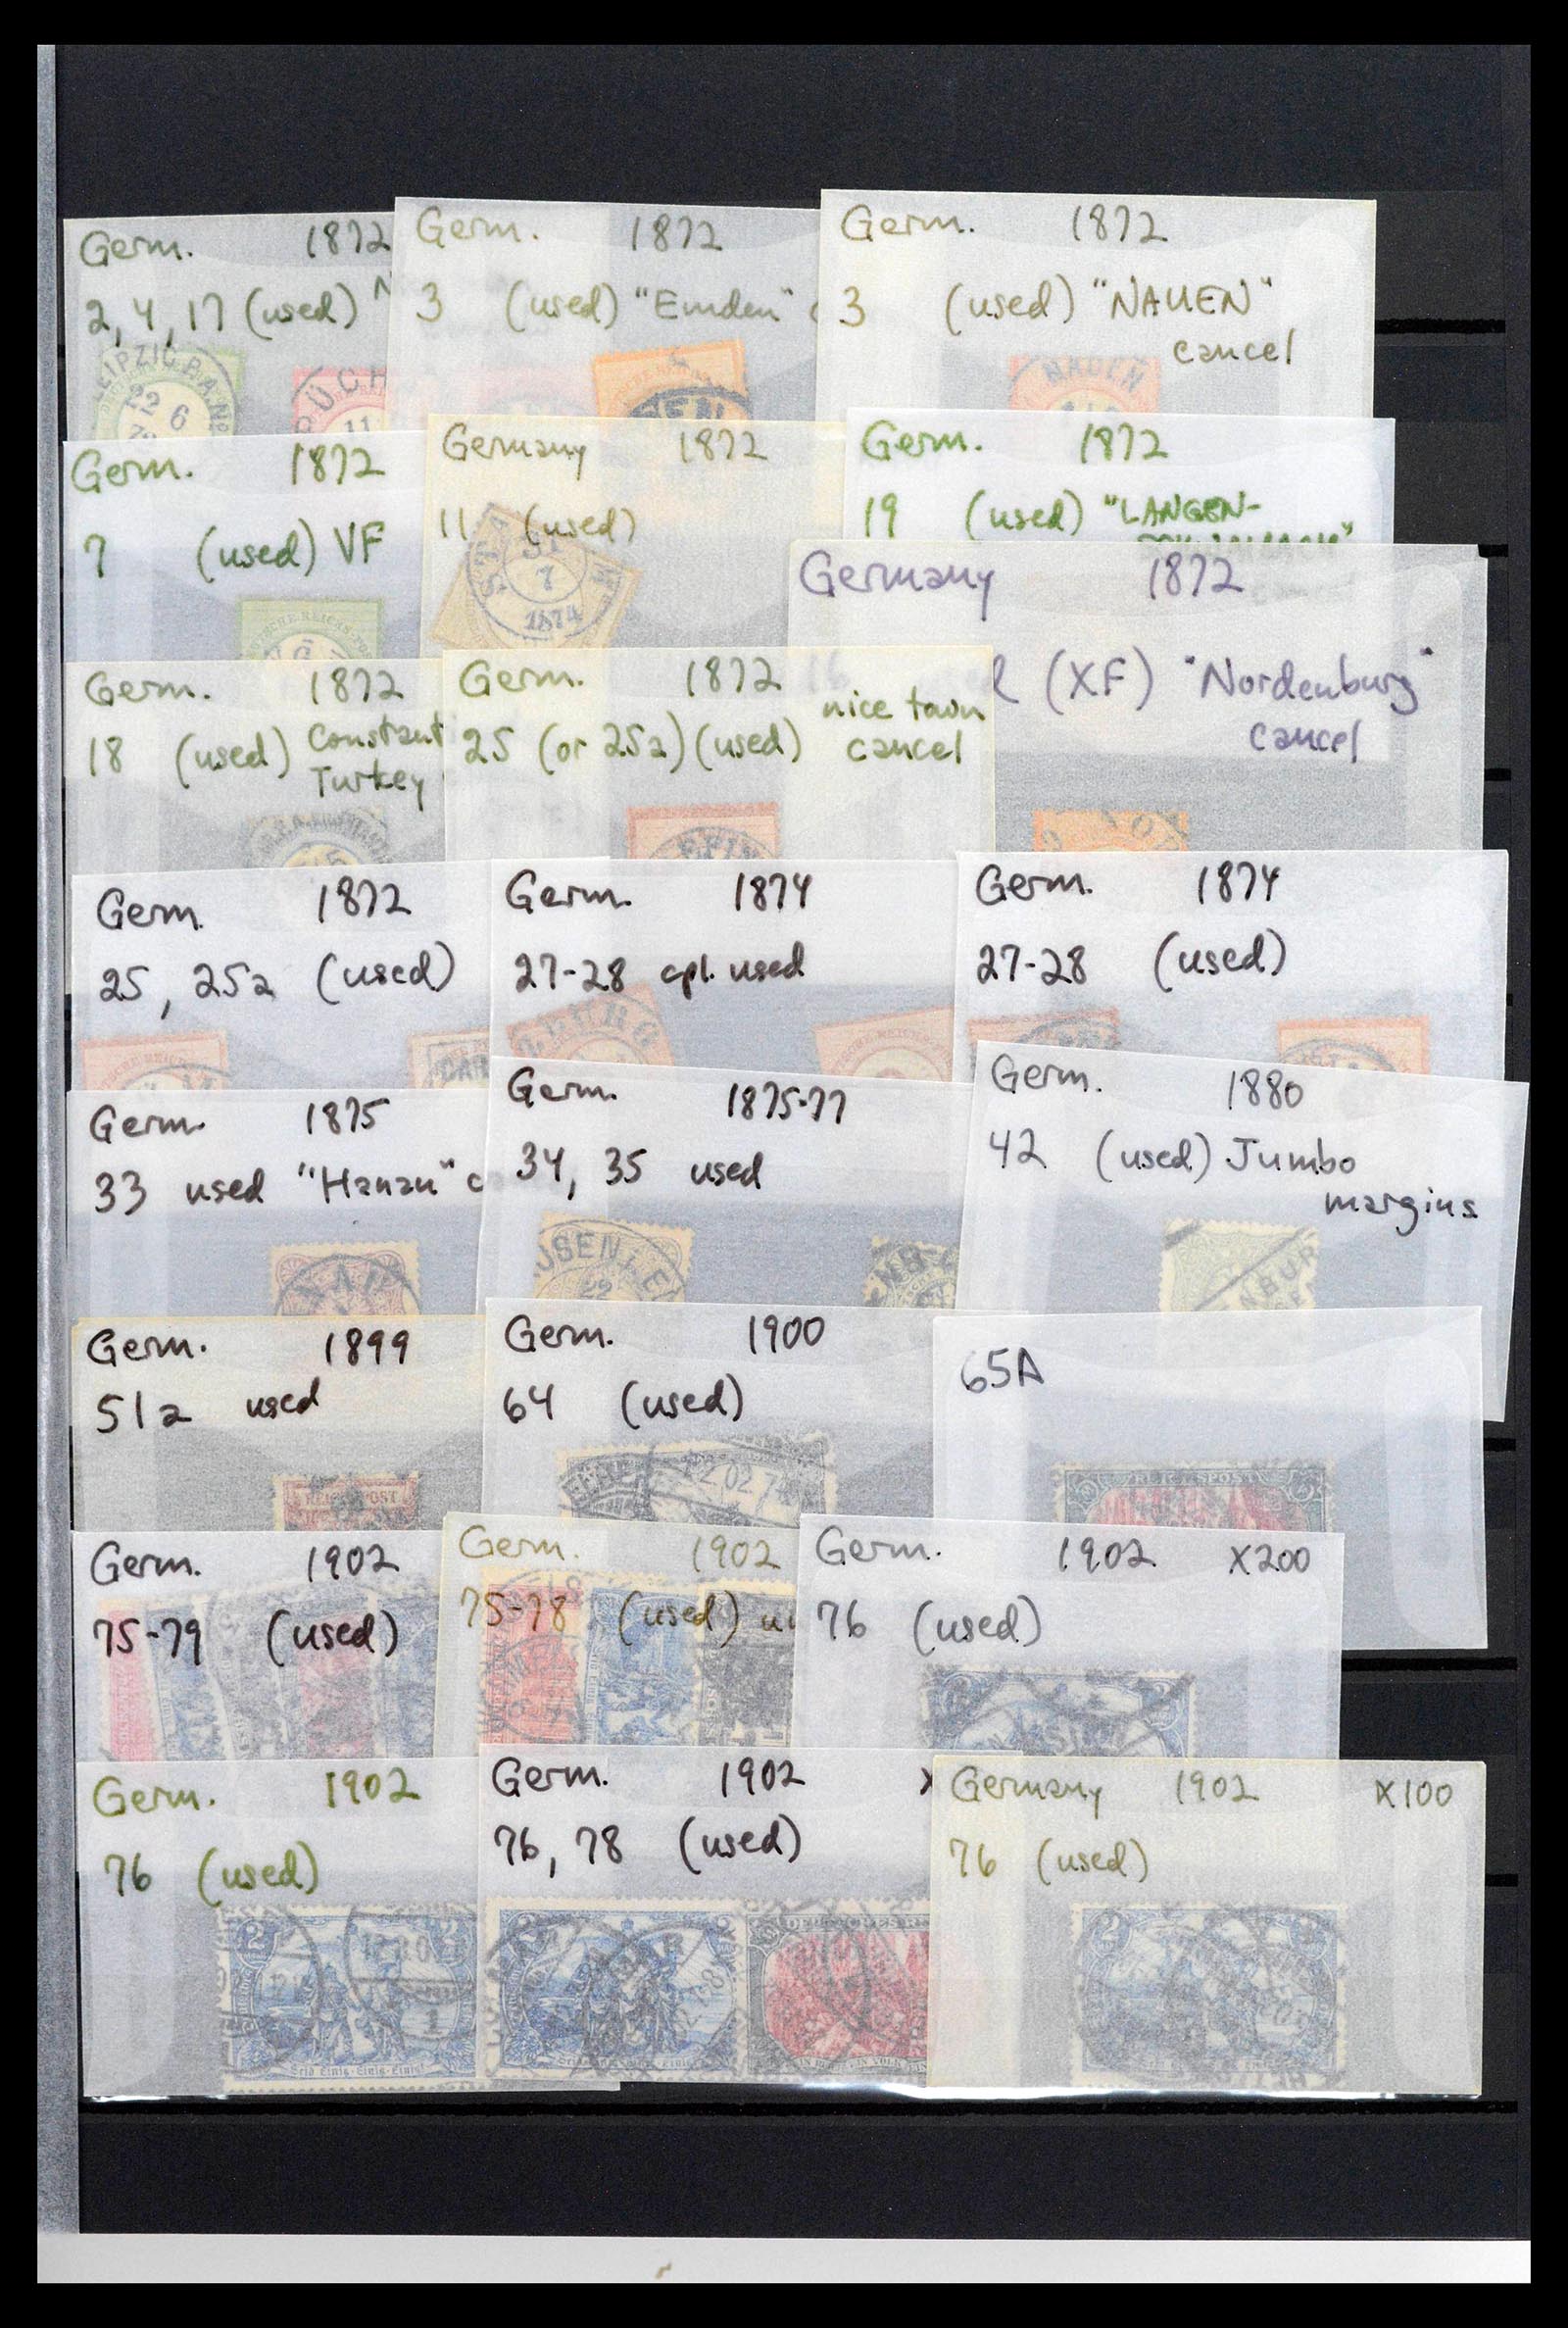 Germ. 1872
2, 4, 17 (used)
LEIPZIG P.A. No
22 6
Germ. 1872
3 (used) "Emden"
Germ. 1872
3 (used) "NAUEN"
cancel
NAUEN
Germ. 1872
7 (used) VF
Germany 1872
11 (used)
7
1874
Germ. 1872
19 (used) "LANGEN-
Germany 1872
(XF) "Nordenburg"
cancel
Germ. 1872
18 (used) Constant
Turkey
Germ. 1872
nice town
25 (or 25a) (used) cancel
Germ. 1872
25, 25a (used)
Germ. 1874
27-28 cpl. used
Germ. 1874
27-28 (used)
Germ. 1875
33 used "Hanau" c
Germ. 1875-77
34, 35 used
Germ. 1880
42 (used) Jumbo
margins
Germ. 1899
51a used
REICHSPOST
Germ. 1900
64 (used)
65A
REICHSPOST
Germ. 1902
75-79 (used)
Germ. 1902
75-78 (used)
Germ. 1902 X200
76 (used)
Germ. 1902
76 (used)
Seid Einig-Einig-Einig!
Germ. 1902 X
76, 78 (used)
Germany 1902 X100
76 (used)